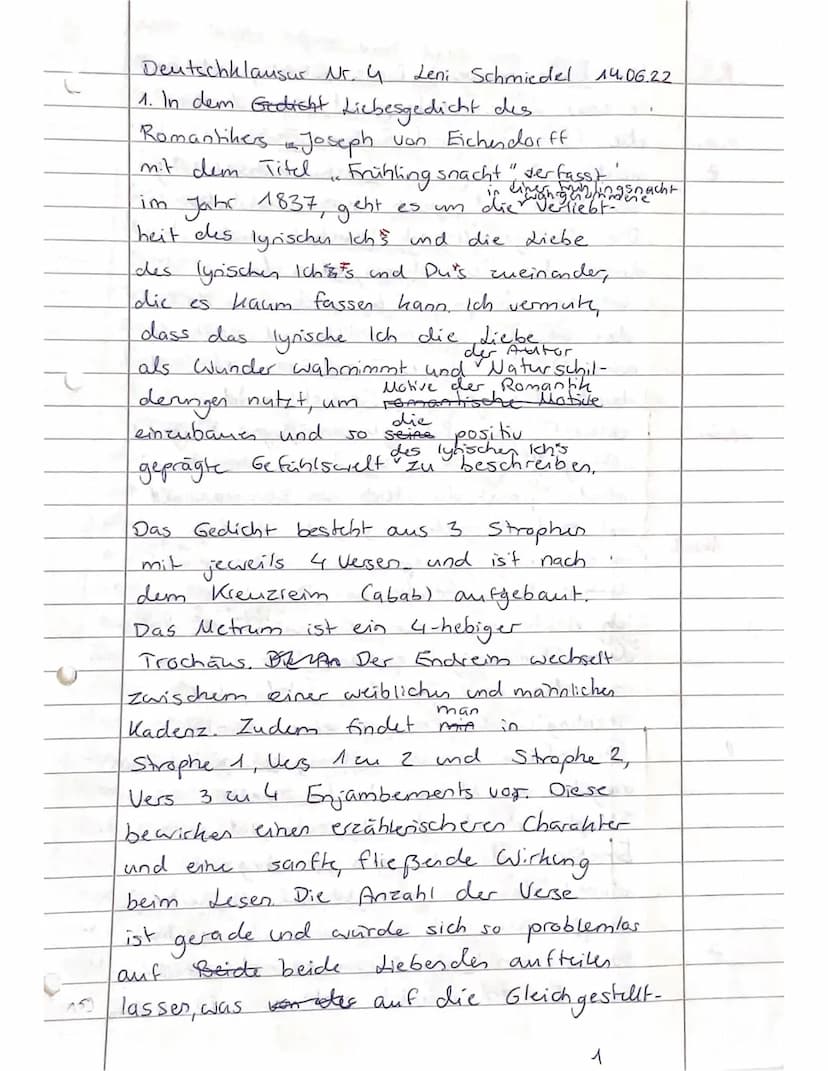 Deutschklausur Nr. 4 Leni Schmiedel 14.06.22
1. In dem Gedicht Liebesgedicht des
Romantikers Joseph von Eichendorff
mit dem Titel „Frühlingsnacht", verfasst
in einer Frühlingsnacht
im Jahr 1837, geht es um die Verliebt-
heit des lyrischen Ichs und die Liebe
des lyrischen Ich's und Du's zueinander,
die es kaum fassen kann. Ich vermute,
dass das lyrische Ich die Liebe
der Autor
als Wunder wahrnimmt und Naturschil-
Motive der Romantik
derungen nutzt, um romantische Motive
die
einzubauen und so seine positiv
des lyrischen Ich's
geprägte Gefühlswelt zu beschreiben.
Das Gedicht besteht aus 3 Strophen
mit jeweils 4 Versen und ist nach
dem Kreuzreim (abab) aufgebaut.
Das Metrum ist ein 4-hebiger
Trochäus. Der Endreim wechselt
zwischem einer weiblichen und männlichen
man
Kadenz. Zudem findet min in
Strophe 1, Vers 1 zu 2 und Strophe 2,
Vers 3 zu 4 Enjambements vor. Diese
bewirken einen erzählerischeren Charakter
und eine sanfte, fließende Wirkung
beim Lesen. Die Anzahl der Verse
ist gerade und würde sich so problemlos
auf Beide beide Liebenden aufteilen
15)
lassen, was auf die Gleichgestellt-
1